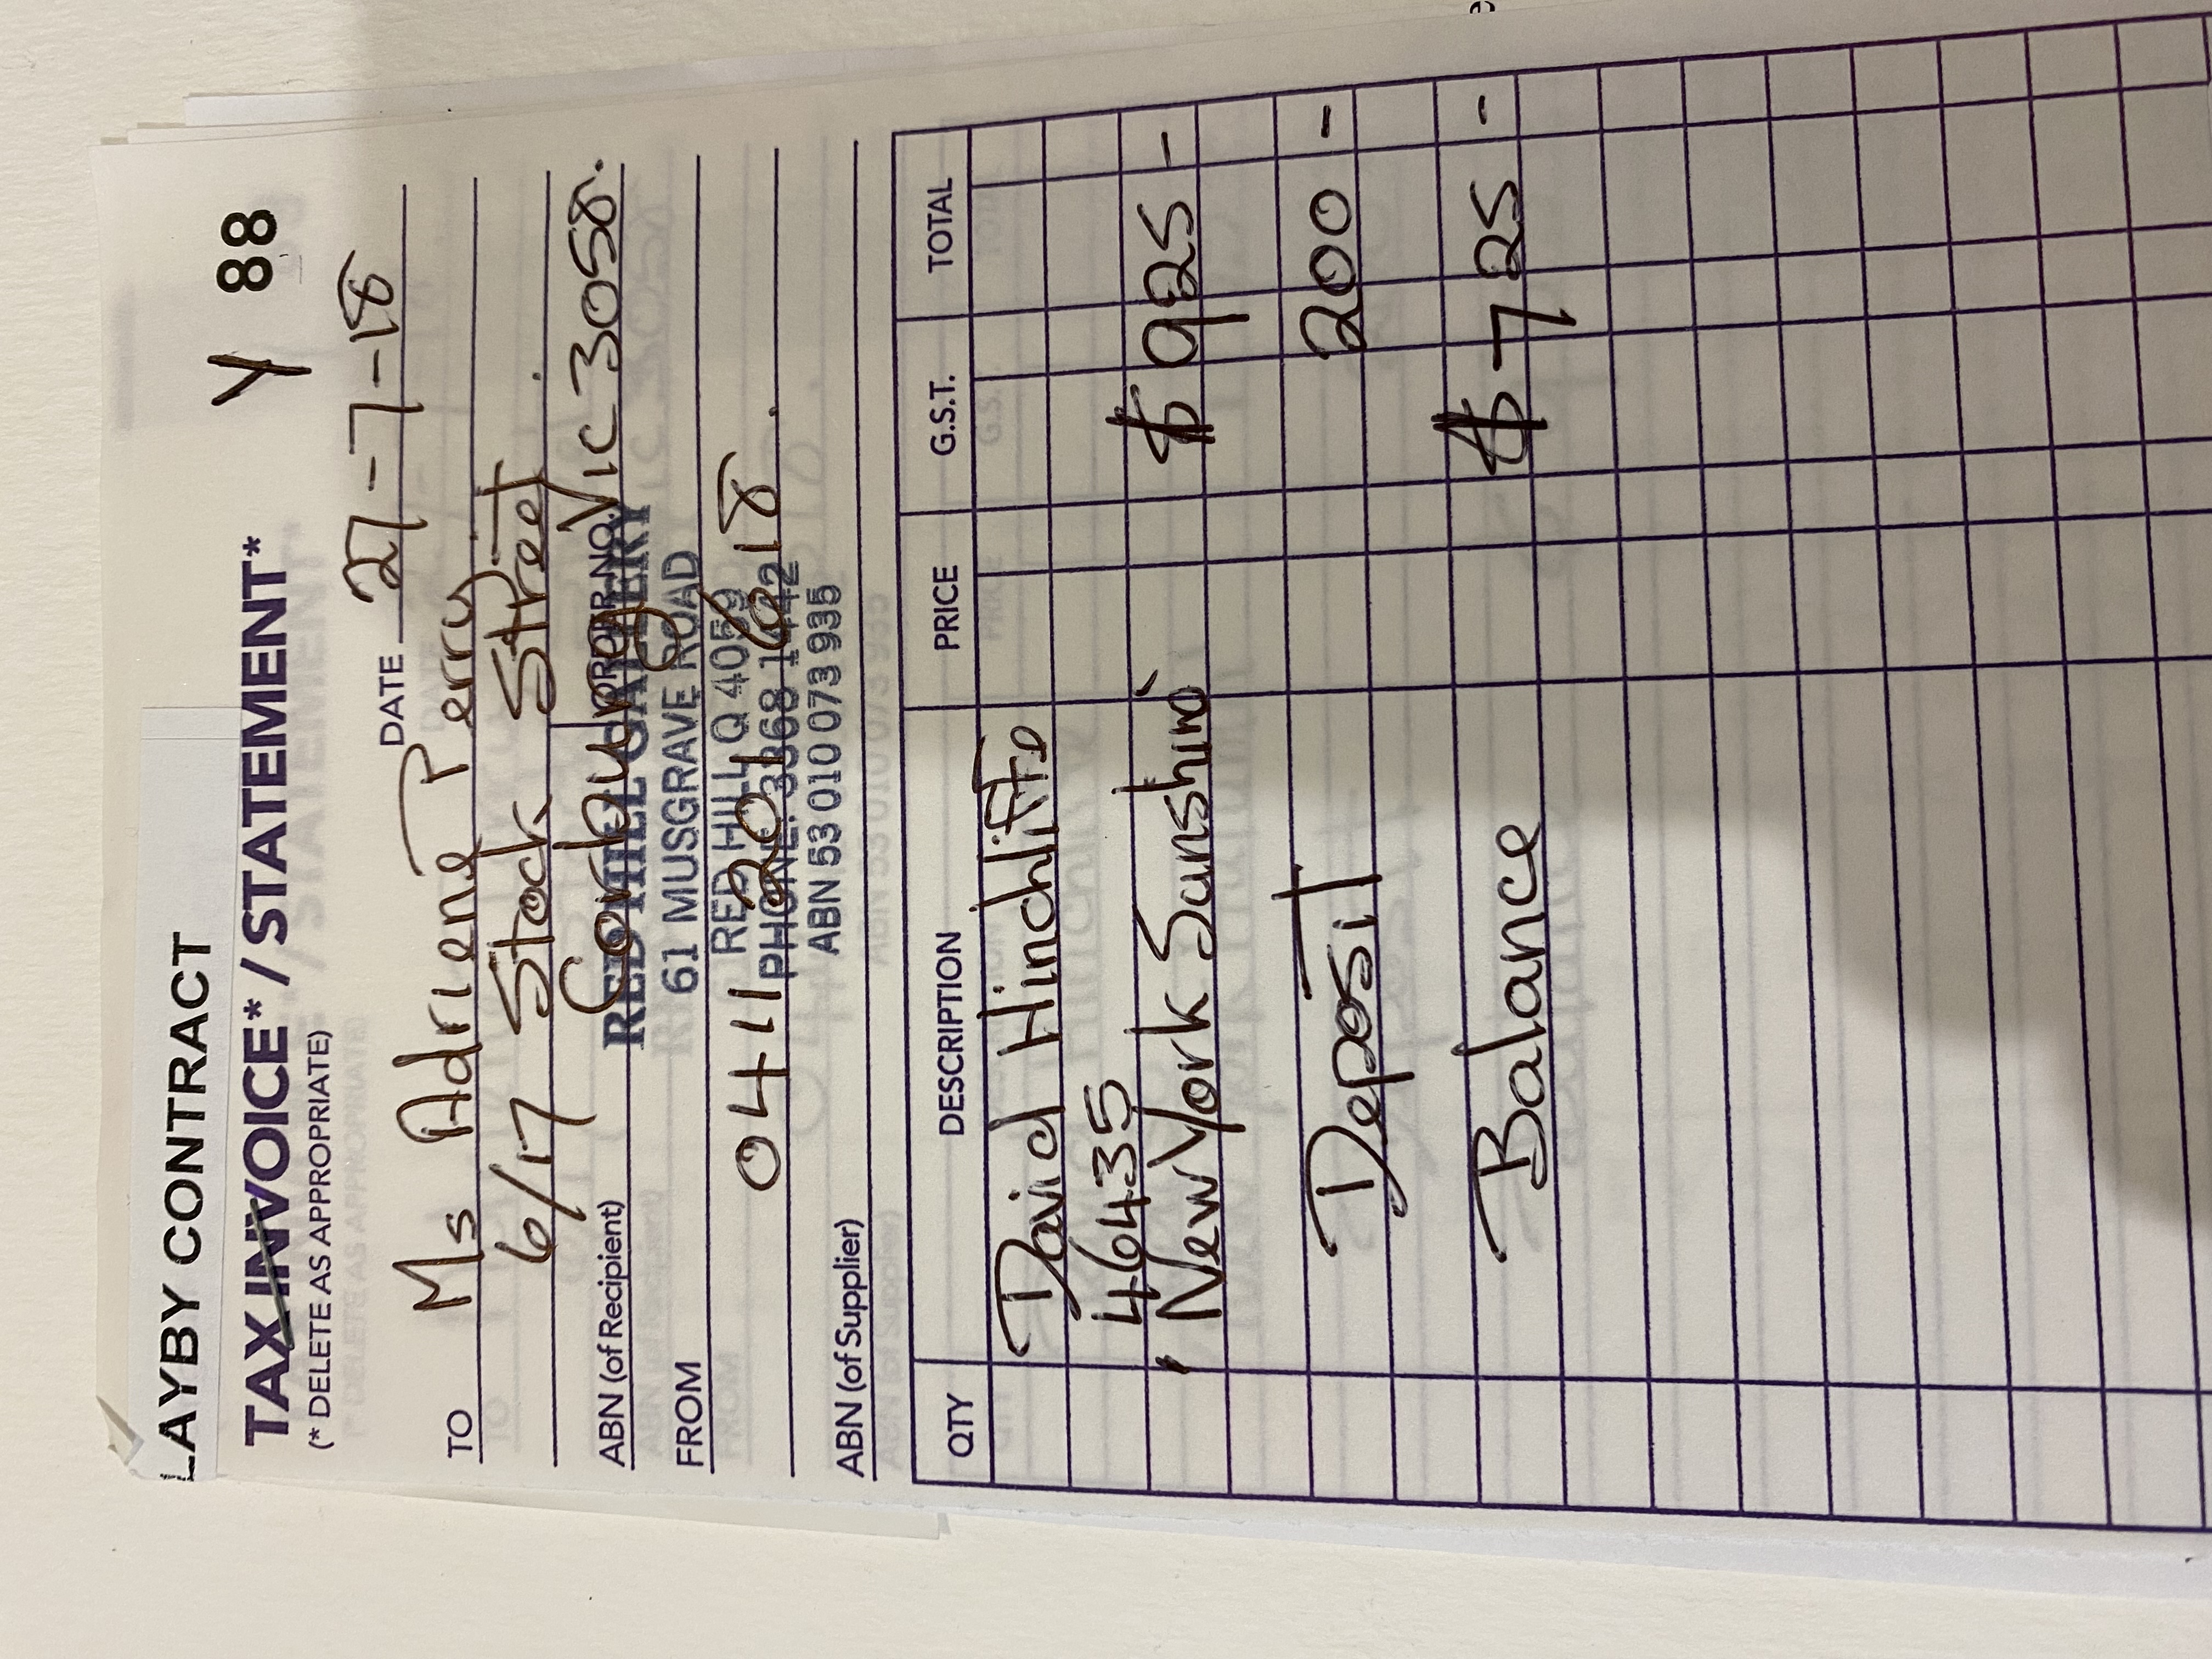 LAYBY CONTRACT
Y 88
TAX INVOICE* / STATEMENT*
(* DELETE AS APPROPRIATE)
DATE 27-7-18
TO Ms Adriene Perry
6/17 Stock Street
ABN (of Recipient) Coburg Vic 3058.
ORDER NO.
RED HILL GALLERY
FROM 61 MUSGRAVE ROAD
RED HILL Q 4059
0411 201 618
PHONE: 3368 1442
ABN 53 010 073 935
ABN (of Supplier)
QTY DESCRIPTION PRICE G.S.T. TOTAL
David Hinchliffe
46435
'New York Sunshine' $ 925 -
Deposit 200 -
Balance $ 725 -